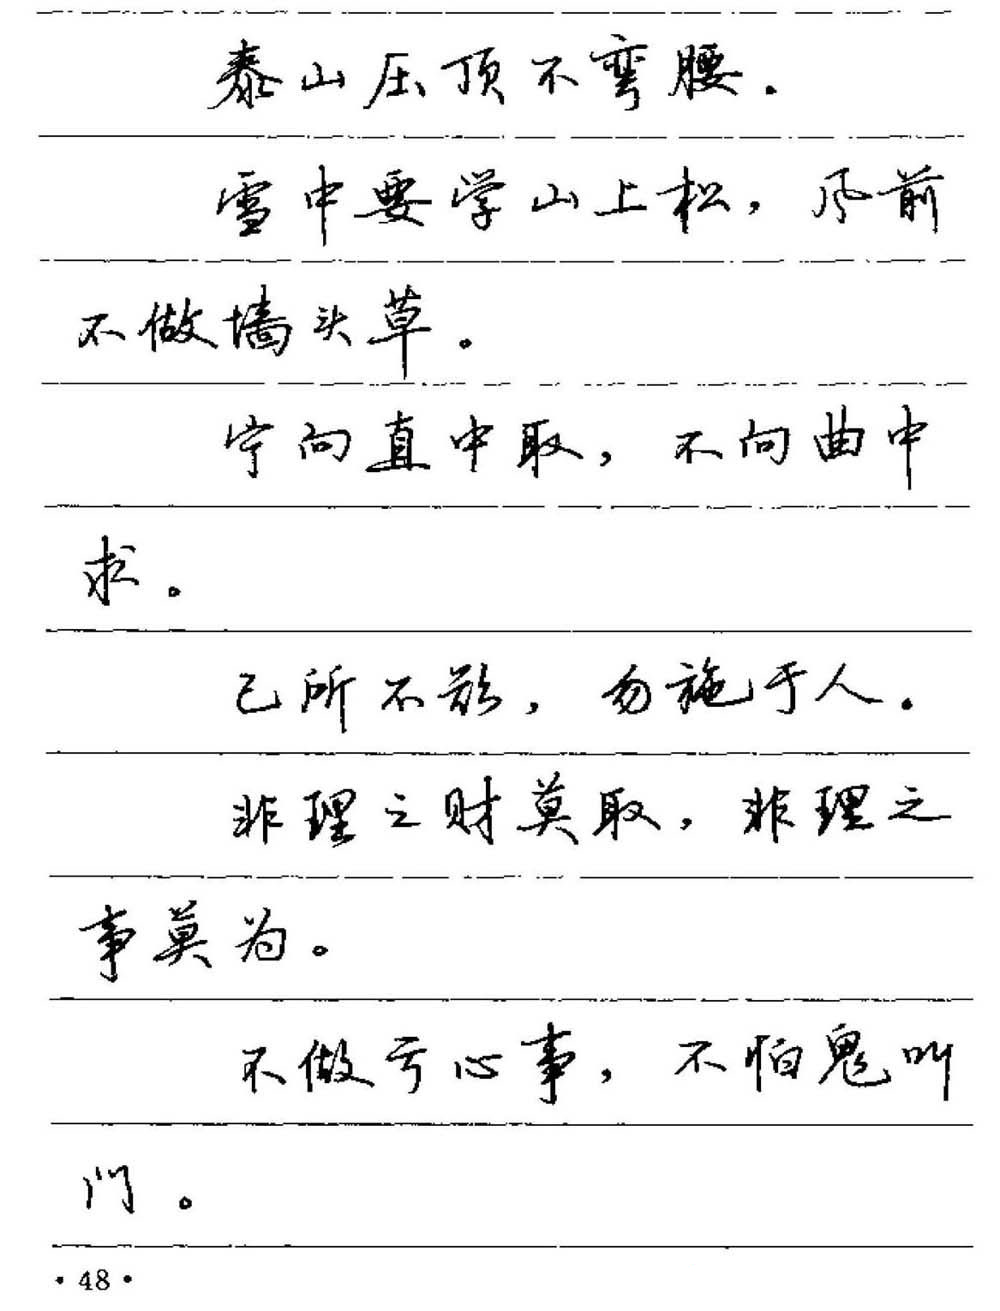 泰山压顶不弯腰.
雪中要学山上松，风前
不做墙头草。
宁向直中取，不向曲中
求。
己所不欲，勿施于人。
非理之财莫取，非理之
事莫为。
不做亏心事，不怕鬼叫
门。
·48·